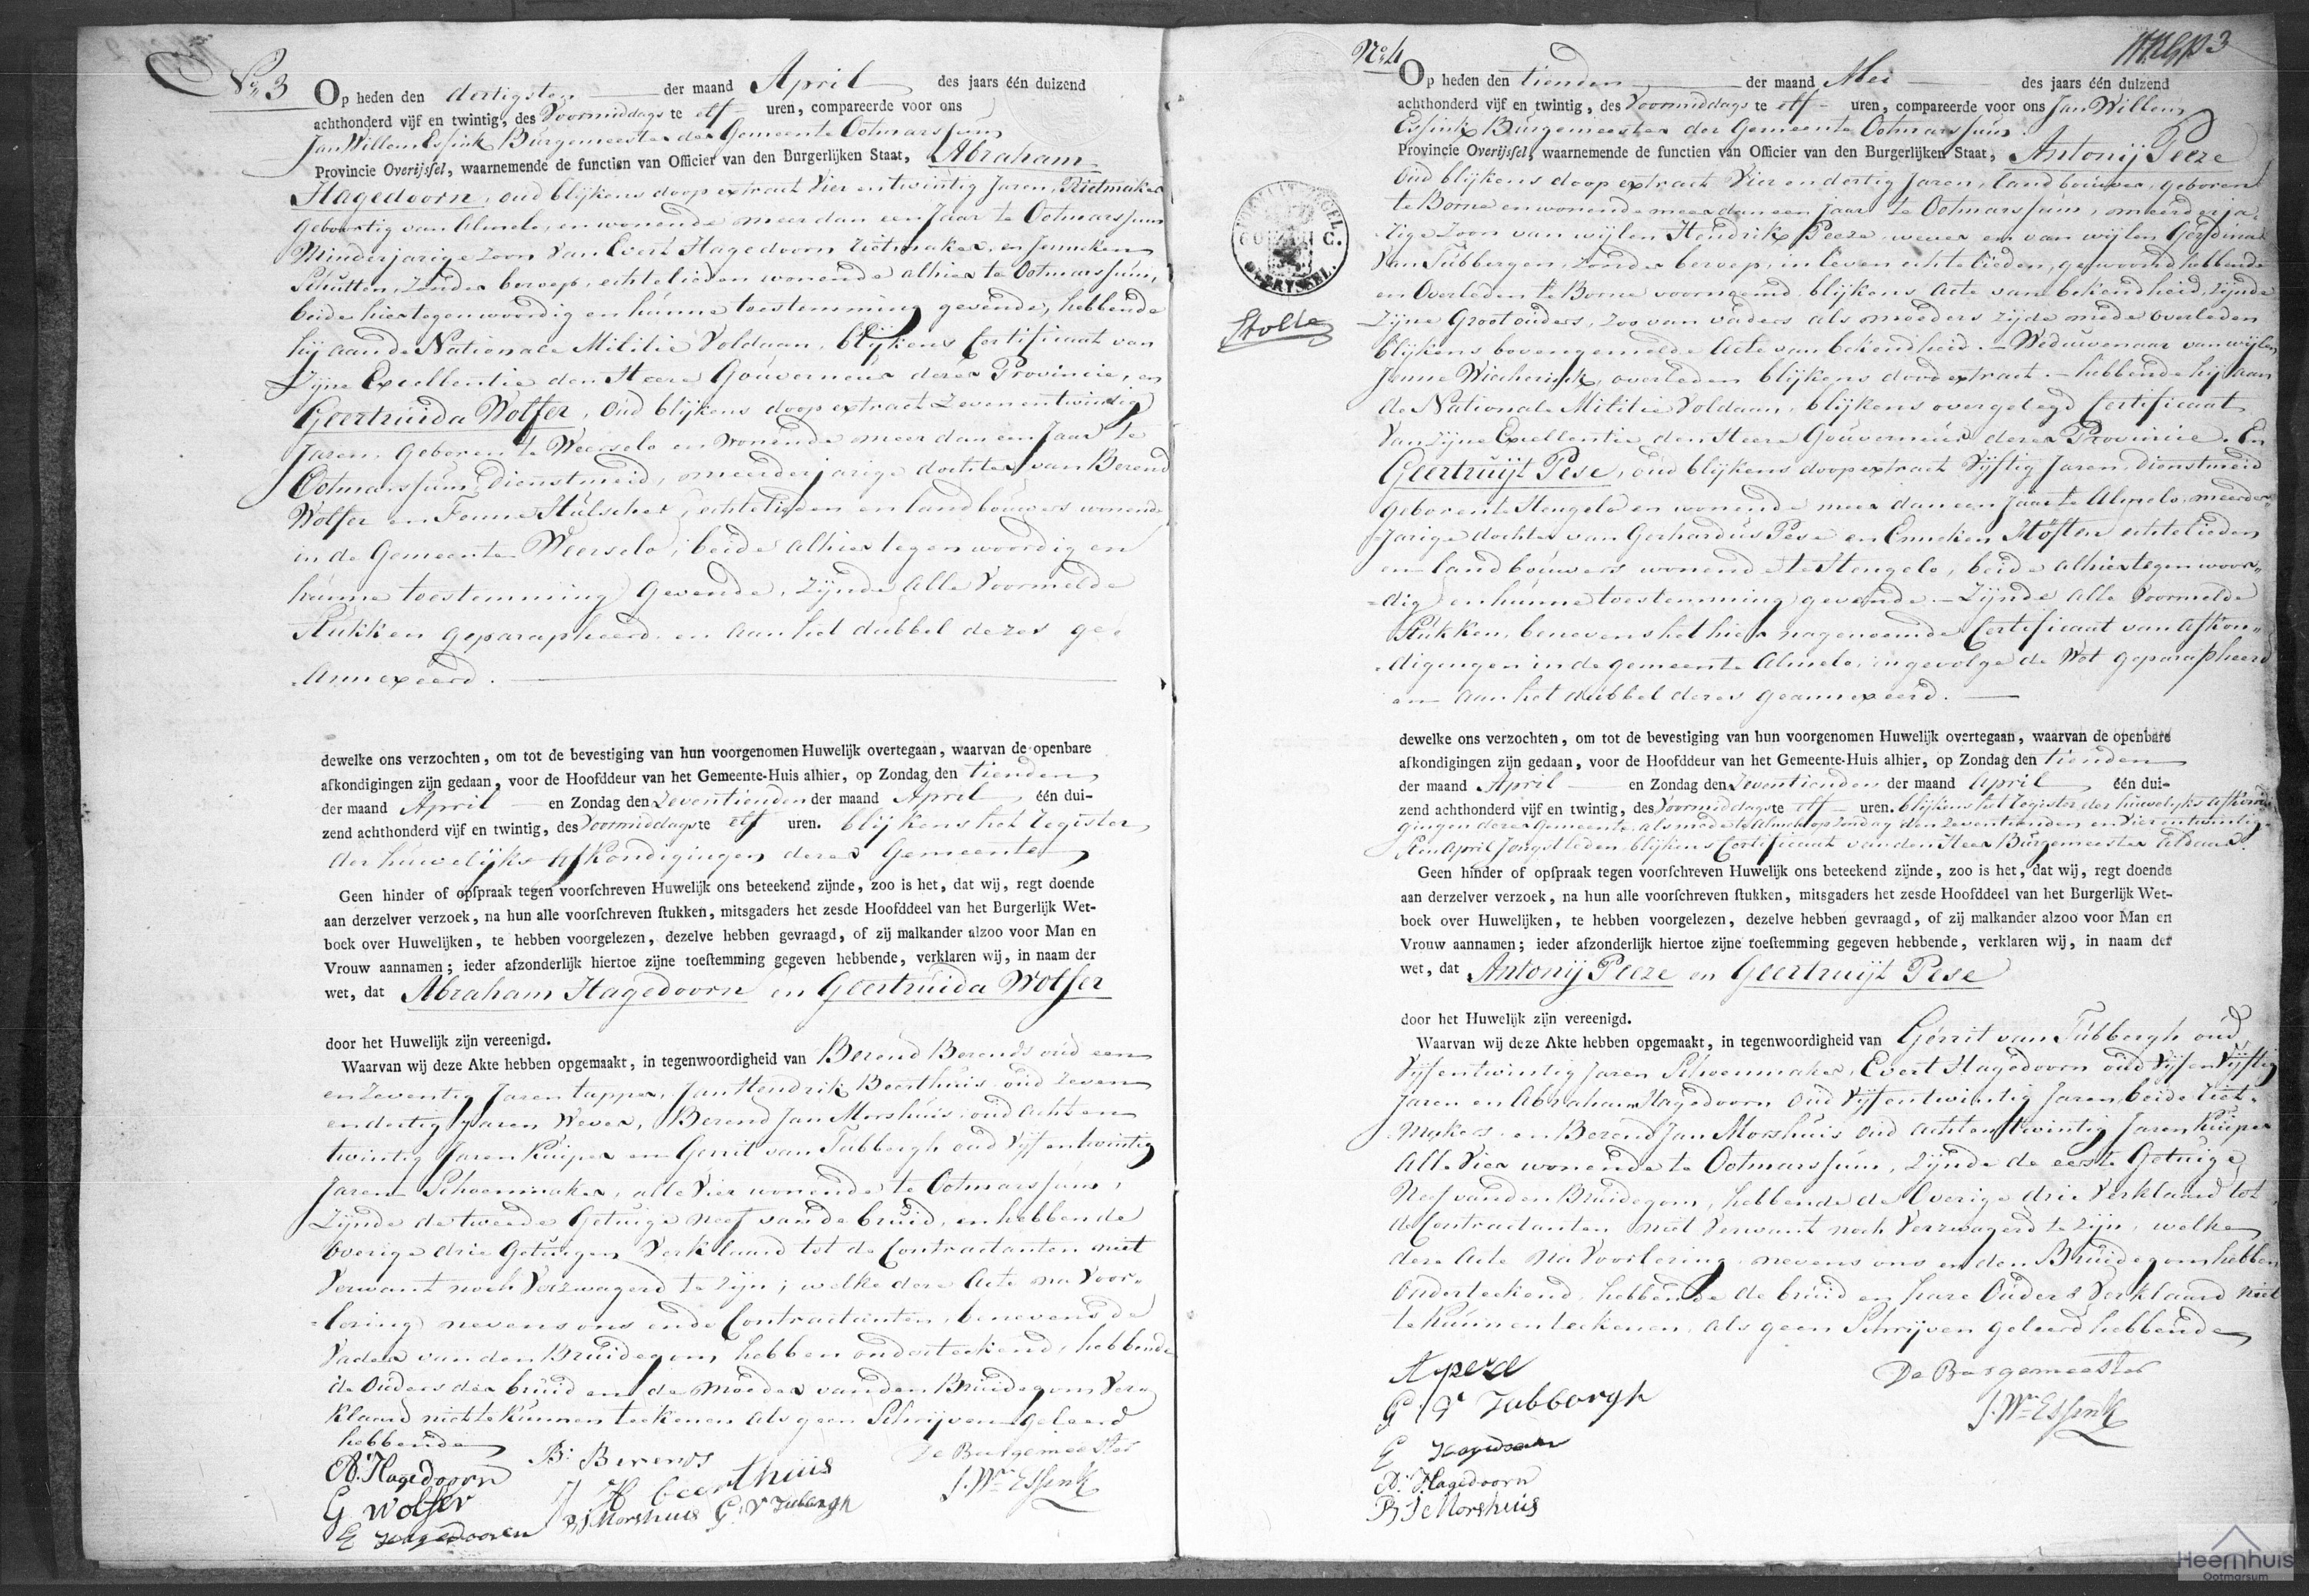 No. 3
Op heden den dertigsten der maand April des jaars één duizend
achthonderd vijf en twintig, des Voormiddags te elf uren, compareerde voor ons
Jan Willem Essink Burgemeester der Gemeente Ootmarssum
Provincie Overijssel, waarnemende de functien van Officier van den Burgerlijken Staat, Abraham
Hagedoorn, oud blijkens doop extract Vier en twintig Jaren, Rietmaker
geboortig van Almelo, en wonende meer dan een Jaar te Ootmarssum
Minderjarige zoon van Evert Hagedoorn rietmaker, en Jenneken
Schutten, zonder beroep, echtelieden wonende alhier te Ootmarssum,
beide hier tegenwoordig en hunne toestemming gevende, hebbende
hij aan de Nationale Militie Voldaan, blijkens Certificaat van
Zijne Excellentie den Heere Gouverneur dezer Provincie, en
Geertruida Wolfer, Oud blijkens doop extract Zeven en twintig
Jaren, Geboren te Weerselo en Wonende meer dan een Jaar te
Ootmarssum, dienstmeid, meerderjarige dochter van Berend
Wolfer en Fenne Hulscher, echtelieden en landbouwers wonende
in de Gemeente Weerselo, beide alhier tegenwoordig en
hunne toestemming Gevende, Zijnde alle Voormelde
Stukken geparapheerd en aan het dubbel dezes ge-
annexeerd.
dewelke ons verzochten, om tot de bevestiging van hun voorgenomen Huwelijk overtegaan, waarvan de openbare
afkondigingen zijn gedaan, voor de Hoofddeur van het Gemeente-Huis alhier, op Zondag den tienden
der maand April en Zondag den Zeventienden der maand April één dui-
zend achthonderd vijf en twintig, des Voormiddags te elf uren. blijkens het register
der huwelijks afkondigingen dezer Gemeente
Geen hinder of opspraak tegen voorschreven Huwelijk ons beteekend zijnde, zoo is het, dat wij, regt doende
aan derzelver verzoek, na hun alle voorschreven stukken, mitsgaders het zesde Hoofddeel van het Burgerlijk Wet-
boek over Huwelijken, te hebben voorgelezen, dezelve hebben gevraagd, of zij malkander alzoo voor Man en
Vrouw aannamen; ieder afzonderlijk hiertoe zijne toestemming gegeven hebbende, verklaren wij, in naam der
wet, dat Abraham Hagedoorn en Geertruida Wolfer
door het Huwelijk zijn vereenigd.
Waarvan wij deze Akte hebben opgemaakt, in tegenwoordigheid van Berend Berends oud een
en Zeventig Jaren tapper, Jan Hendrik Beerthuis oud Zeven
en dertig Jaren Wever, Berend Jan Morshuis oud acht en
twintig Jaren Kuiper en Gerrit van Tubbergh oud Vijf en twintig
Jaren Schoenmaker, alle Vier wonende te Ootmarssum,
Zijnde de tweede Getuige neef van de bruid, en hebben de
Overige drie Getuigen Verklaard tot de Contractanten niet
Verwant noch Verzwagerd te zijn; welke deze Acte na Voor-
lezing nevens ons en de Contractanten, benevens de
Vader van den Bruidegom hebben onderteekend, hebbende
de Ouders der bruid en de Moeder van den Bruidegom Ver-
klaard niet te kunnen teekenen als geen Schrijven geleerd
hebbende
A: Hagedoorn
B: Berends
De Burgemeester
G Wolfer
J H Beerthuis
J. Wm Essink
E Hagedooren
B J Morshuis G. V Tubergh
No. 4
Op heden den tienden der maand Mei des jaars één duizend
achthonderd vijf en twintig, des Voormiddags te elf uren, compareerde voor ons Jan Willem
Essink Burgemeester der Gemeente Ootmarssum
Provincie Overijssel, waarnemende de functien van Officier van den Burgerlijken Staat, Antonij Peeze
Oud blijkens doop extract Vier en dertig Jaren, landbouwer, geboren
te Borne en wonende meer dan een Jaar te Ootmarssum, meerderja-
rige zoon van wijlen Hendrik Peeze wever en van wijlen Gerdina
Van Tubbergen, zonder beroep, in leven echtelieden, gewoond hebbende
en Overleden te Borne voornoemd blijkens Acte van bekendheid, Zijnde
Zijne Grootouders, zoo van vaders als moeders zijde mede overleden
blijkens bovengemelde Acte van bekendheid. Weduwenaar van wijlen
Jenne Wiecherink, overleden blijkens dood extract. hebbende hij aan
de Nationale Militie Voldaan, blijkens overgelegd Certificaat
Van Zijne Excellentie den Heere Gouverneur dezer Provincie. En
Geertruijt Pese, oud blijkens doop extract Vijftig Jaren, dienstmeid
geboren te Hengelo en wonende meer dan een Jaar te Almelo, meerder-
jarige dochter van Gerhardus Pese en Enneken Höften echtelieden
en landbouwers wonende te Hengelo, beide alhier tegenwoor-
dig en hunne toestemming gevende. Zijnde alle Voormelde
Stukken, benevens het hier nagenoemde Certificaat van afkon-
digingen in de gemeente Almelo, ingevolge de Wet geparapheerd
en aan het dubbel dezes geannexeerd.
STOLLE
dewelke ons verzochten, om tot de bevestiging van hun voorgenomen Huwelijk overtegaan, waarvan de openbare
afkondigingen zijn gedaan, voor de Hoofddeur van het Gemeente-Huis alhier, op Zondag den tienden
der maand April en Zondag den Zeventienden der maand April één dui-
zend achthonderd vijf en twintig, des Voormiddags te elf uren. blijkens het register der huwelijks afkondi-
gingen dezer Gemeente, als mede te Almelo op Zondag den zeventienden en Vier en twintig-
sten April Jongstleden blijkens Certificaat van den Heer Burgemeester Aldaar.
Geen hinder of opspraak tegen voorschreven Huwelijk ons beteekend zijnde, zoo is het, dat wij, regt doende
aan derzelver verzoek, na hun alle voorschreven stukken, mitsgaders het zesde Hoofddeel van het Burgerlijk Wet-
boek over Huwelijken, te hebben voorgelezen, dezelve hebben gevraagd, of zij malkander alzoo voor Man en
Vrouw aannamen; ieder afzonderlijk hiertoe zijne toestemming gegeven hebbende, verklaren wij, in naam der
wet, dat Antonij Peeze en Geertruijt Pese
door het Huwelijk zijn vereenigd.
Waarvan wij deze Akte hebben opgemaakt, in tegenwoordigheid van Gerrit van Tubbergh oud
Vijf en twintig Jaren Schoenmaker, Evert Hagedoorn oud Vijf en Vijftig
Jaren en Abraham Hagedoorn Oud Vijf en twintig Jaren, beide riet-
makers en Berend Jan Morshuis oud acht en twintig Jaren Kuiper
alle Vier wonende te Ootmarssum, Zijnde de eerste Getuige
Neef van den Bruidegom, hebbende de Overige drie Verklaard tot
de Contractanten niet Verwant noch Verzwagerd te zijn, welke
deze Acte na Voorlezing nevens ons en den Bruidegom hebben
Onderteekend, hebbende de bruid en hare Ouders Verklaard niet
te kunnen teekenen, als geen Schrijven geleerd hebbende
A peze
De Burgemeester
G. V Tubbergh
J. Wm Essink
E Hagedooren
A: Hagedoorn
B J Morshuis
Heemhuis
Ootmarsum